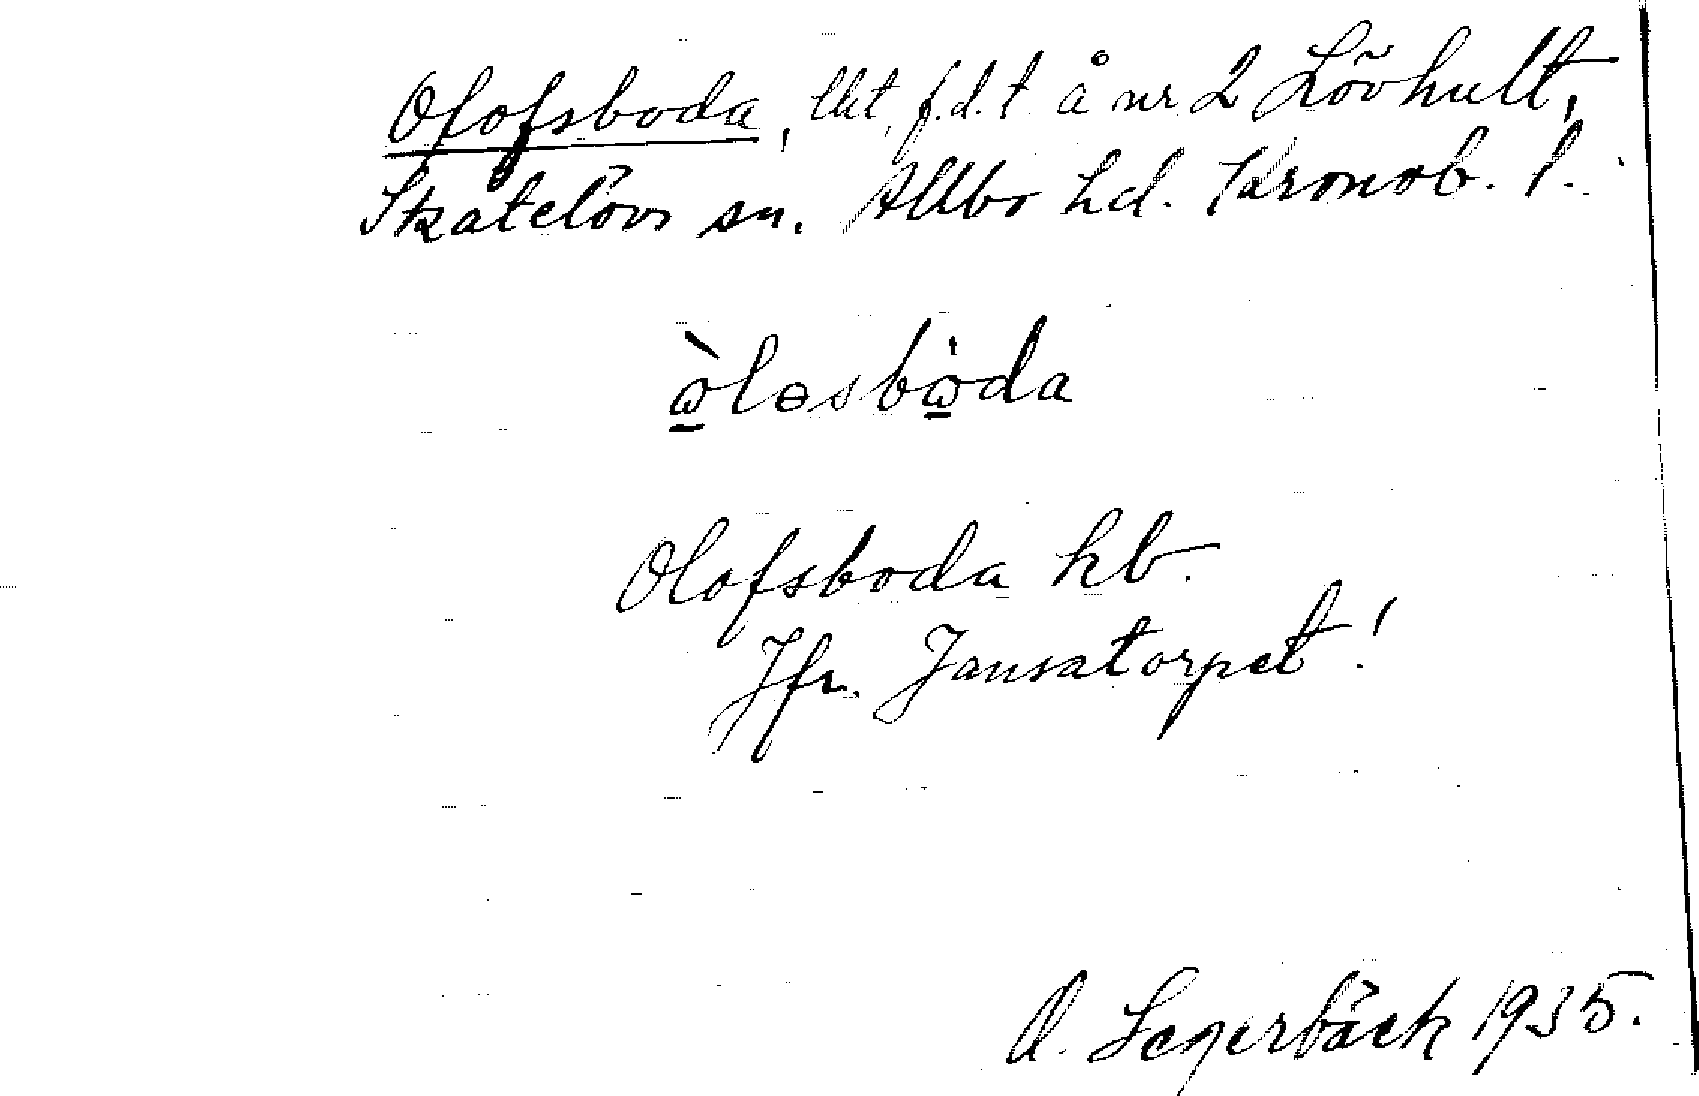 Olofsboda, lht, f.d.t å nr 2 Lövhult,
Skatelövs sn. Allbo hd. Kronob. l.
ὼlɵsbὼda
Olofsboda kb.
Jfr. Jansatorpet!
O. Segerbäck 1935.